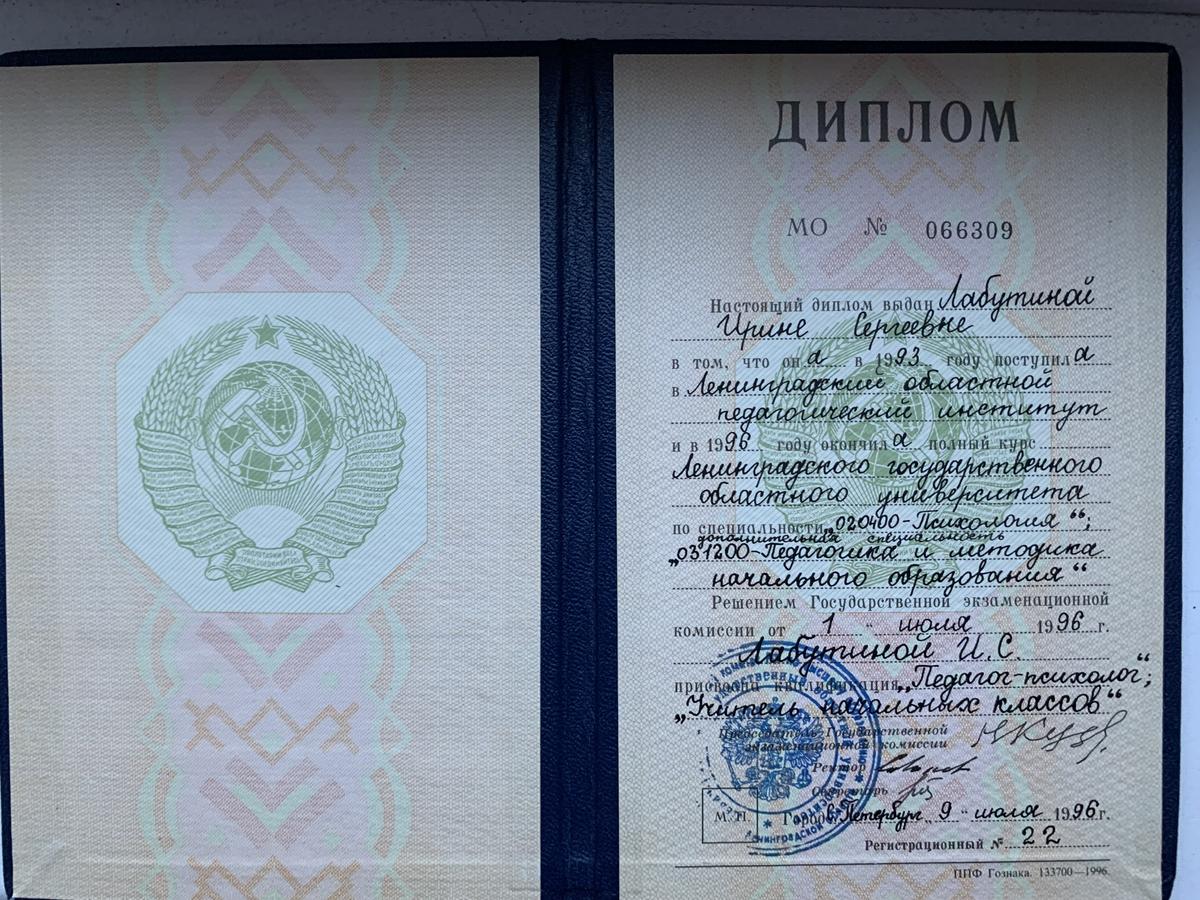 ДИПЛОМ
МО № 066309
Настоящий диплом выдан Лабутиной
Ирине Сергеевне
в том, что она в 1993 году поступила
в Ленинградский областной
педагогический институт
и в 1996 году окончила полный курс
Ленинградского государственного
областного университета
по специальности „020400-Психология“;
дополнительная специальность
„031200-Педагогика и методика
начального образования“
Решением Государственной экзаменационной
комиссии от 1 " июля 1996 г.
Лабутиной И.С.
присвоена квалификация „Педагог-психолог“;
„Учитель начальных классов“
Председатель Государственной
экзаменационной комиссии
Ректор
Секретарь
М. П. Город С.Петербург „ 9 " июля 1996 г.
Регистрационный № 22
ППФ Гознака. 133700—1996.